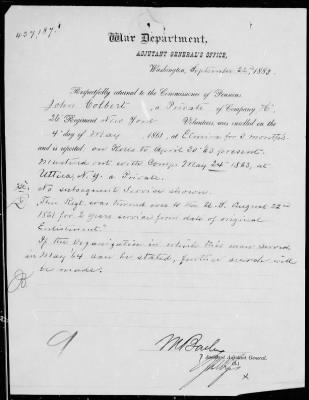 437,187.
War Department,
ADJUTANT GENERAL'S OFFICE,
Washington, September 22, 1883.
Respectfully returned to the Commissioner of Pensions.
John Colbert, a Private of Company
26 Regiment New York Volunteers, was enrolled on the
4 day of May, 1861, at Elmira for 3 months
and is reported on Rolls to April 30 '63 present.
Mustered out with Comp. May 24 1863, at
Utica N.Y. a Private.
No subsequent service shown.
This Regt. was turned over to the U.S. August 22nd
1861 for 2 years service from date of original
Enlistment.
If the organization in which this man served
in May '64 can be stated, further search will
be made.
9
Assistant Adjutant General.